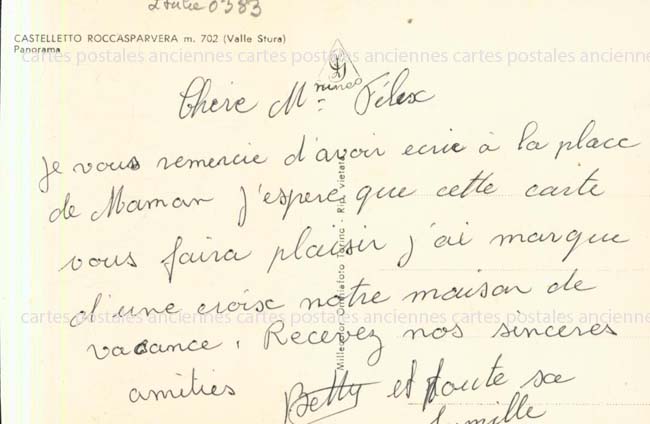 0383
CASTELLETTO ROCCASPARVERA m. 702 (Valle Stura)
Panorama
cartes postales anciennes cartes postales anciennes cartes postales anciennes
Chere Mr Félex
Je vous remercie d'avoir ecrie à la place
de Maman j'espere que cette carte
vous faira plaisir j'ai marque
d'une croix notre maison de
cartes postales anciennes cartes postales anciennes cartes postales anciennes
vacance. Recevez nos sinceres
amities
Betty et toute sa
famille
Torino - Rip. vietata